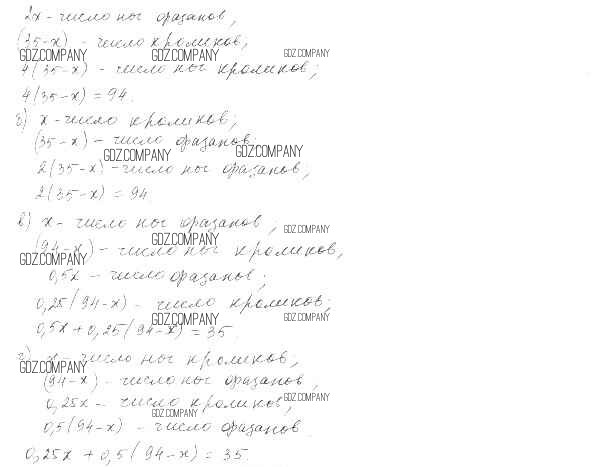 2x - число ног фазанов,
(35-x) - число кроликов,
GDZ.COMPANY GDZ.COMPANY GDZ.COMPANY
4(35-x) - число ног кроликов;
4(35-x) = 94.
б) x - число кроликов;
(35-x) - число фазанов;
GDZ.COMPANY GDZ.COMPANY
2(35-x) - число ног фазанов;
2(35-x) = 94
в) x - число ног фазанов;
GDZ.COMPANY GDZ.COMPANY
(94-x) - число ног кроликов,
GDZ.COMPANY
0,5x - число фазанов;
0,25(94-x) - число кроликов;
GDZ.COMPANY GDZ.COMPANY
0,5x + 0,25(94-x) = 35.
г) x - число ног кроликов,
GDZ.COMPANY
(94-x) - число ног фазанов,
0,25x - число кроликов,
GDZ.COMPANY GDZ.COMPANY
0,5(94-x) - число фазанов.
0,25x + 0,5(94-x) = 35.